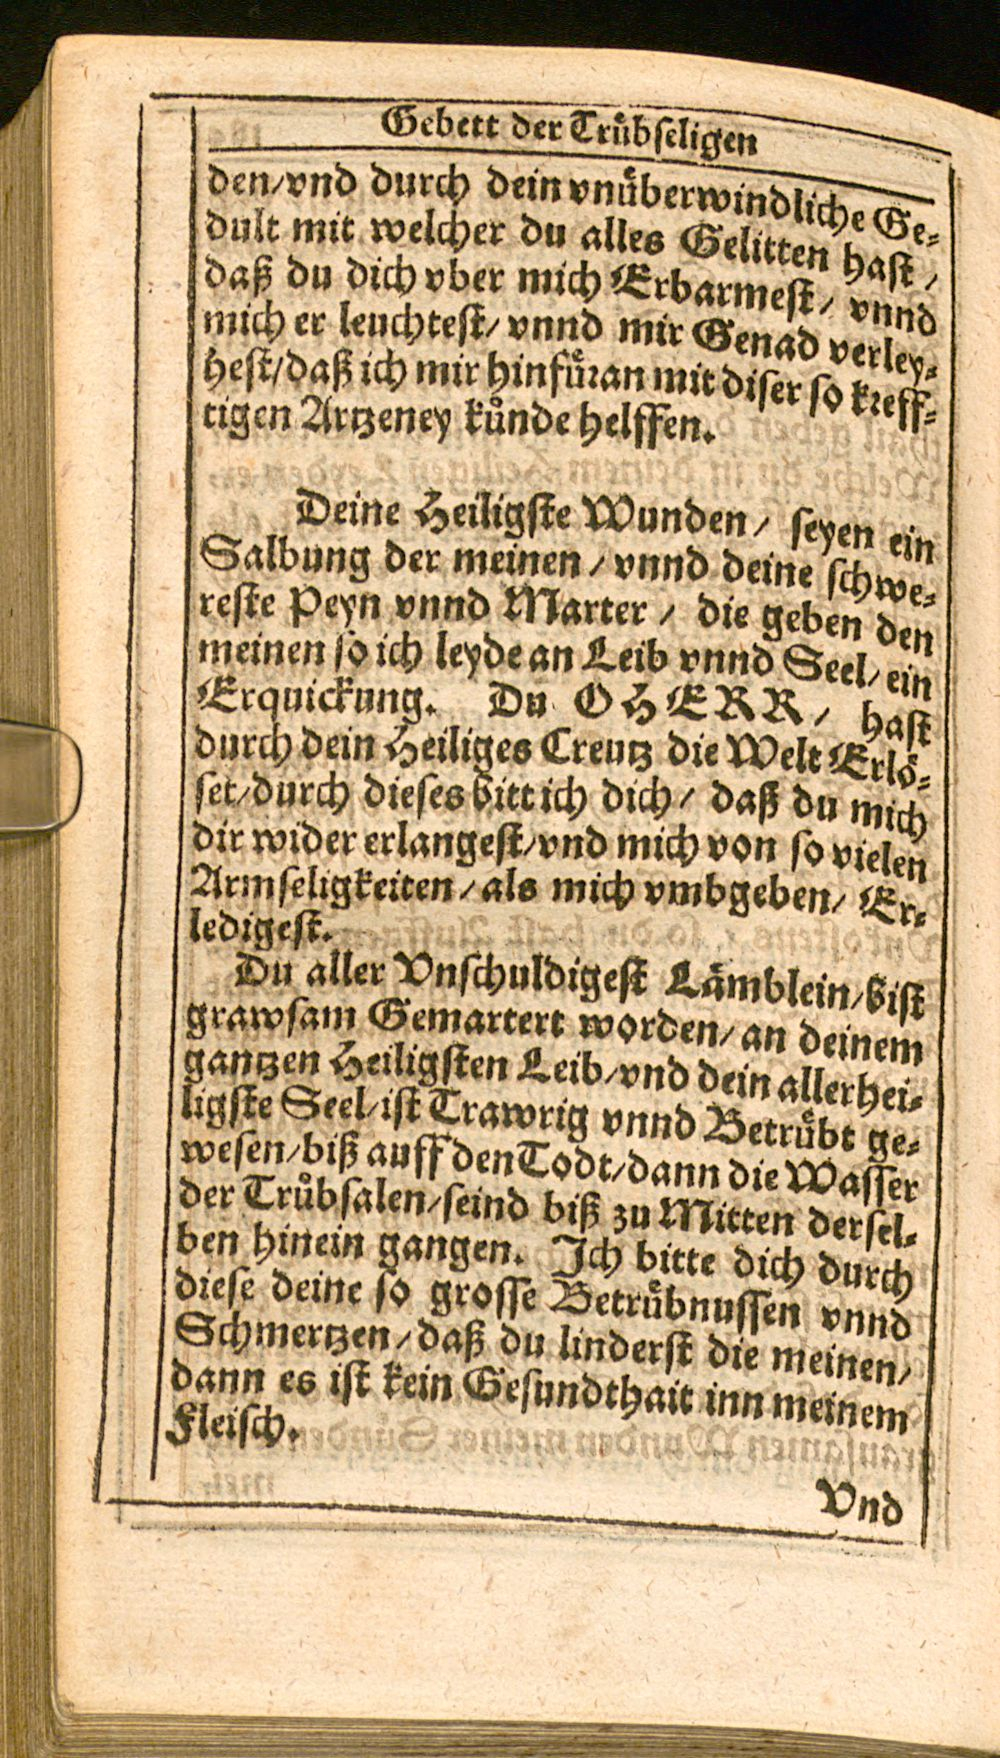 Gebett der Trůbseligen
den/vnd durch dein vnůberwindliche Ge-
dult mit welcher du alles Gelitten hast /
daß du dich vber mich Erbarmest/ vnnd
mich er leuchtest/ vnnd mir Genad verley-
hest/daß ich mir hinfůran mit diser so kreff-
tigen Artzeney kůnde helffen.
Deine Heiligste Wunden/ seyen ein
Salbung der meinen / vnnd deine schwe-
reste Peyn vnnd Marter / die geben den
meinen so ich leyde an Leib vnnd Seel/ ein
Erquickung. Du O HERR / hast
durch dein Heiliges Creutz die Welt Erlö-
set/durch dieses bitt ich dich / daß du mich
dir wider erlangest/vnd mich von so vielen
Armseligkeiten/als mich vmbgeben/ Er-
ledigest.
Du aller Vnschuldigest Lämblein/bist
grawsam Gemartert worden/an deinem
gantzen Heiligsten Leib/vnd dein allerhei-
ligste Seel/ist Trawrig vnnd Betrůbt ge-
wesen/biß auff den Todt/dann die Wasser
der Trůbsalen/seind biß zu Mitten dersel-
ben hinein gangen. Ich bitte dich durch
diese deine so grosse Betrůbnussen vnnd
Schmertzen/daß du linderst die meinen/
dann es ist kein Gesundthait inn meinem
Fleisch.
Vnd